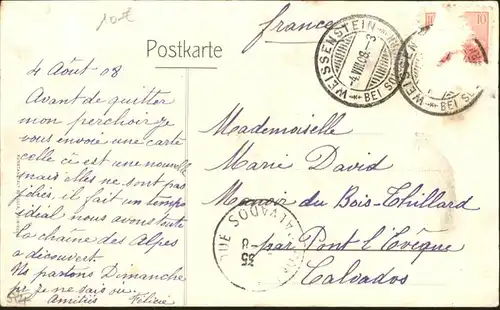 10.-€
france
Postkarte
WEISSENSTEIN
-4.VIII.08.-3
BEI SO
WEISSENSTEIN
BEI SO
10
4 Août 08
Avant de quitter
mon perchoir je
vous envoie une carte
celle ci est une nouvelle
mais elles ne sont pas
jolies, il fait un temps
idéal nous avons toute
la chaîne des Alpes
a découvert.
Ns partons Dimanche
pr je ne sais où.
Amitiés Félicie
Mademoiselle
Marie David
Manoir du Bois-Thillard
par Pont l'Evêque
Calvados
CALVADOS